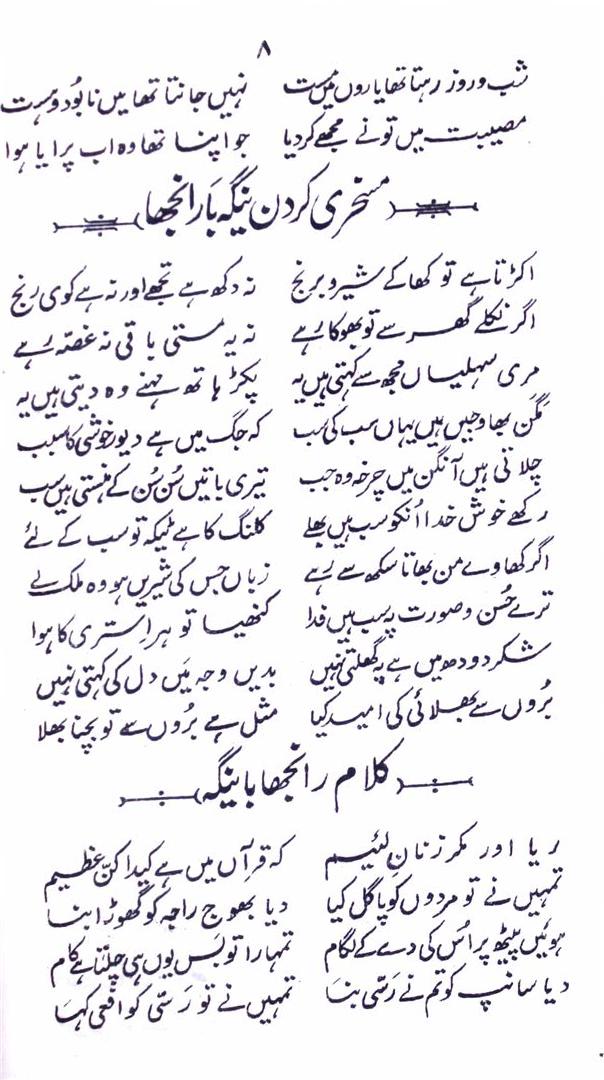 ۸
شب و روز رہتا تھا یاروں میں مست نہیں جانتا تھا میں نابود و ہست
مصیبت میں تو نے مجھے کر دیا جو اپنا تھا وہ اب پرایا ہوا
مسخری کردن نیگہ با رانجھا
اکڑتا ہے تو کھا کے شیر و برنج نہ دکھ ہے تجھے اور نہ ہے کوی رنج
اگر نکلے گھر سے تو بھوکا رہے نہ یہ مستی باقی نہ غصّہ رہے
مری سہلیاں مجھ سے کہتی ہیں یہ پکڑ ہاتھ مہنے وہ دیتی ہیں یہ
مگن بھاوجیں ہیں یہاں سب کی سب کہ جگ میں ہے دیور خوشی کا سبب
چلاتی ہیں آنگن میں چرخہ وہ جب تیری باتیں سُن سُن کے ہنستی ہیں سب
رکھے خوش خدا اُنکو سب ہیں بھلے کلنگ کا ہے ٹیکہ تو سب کے لئے
اگر کھاوے من بھاتا سکھ سے رہے زباں جس کی شیریں ہو وہ ملک لے
ترے حُسن و صورت پہ سب ہیں فدا کنھیا تو ہر اِستری کا ہوا
شکر دودھ میں ہے پہ گھلتی نہیں بدیں وجہ میں دل کی کہتی نہیں
بُروں سے بھلائی کی امید کیا مثل ہے بُروں سے تو بچنا بھلا
کلام رانجھا با نیگہ
ریا اور مکر زنانِ لئیم کہ قرآں میں ہے کیدا کنّ عظیم
تمہیں نے تو مردوں کو پاگل کیا دیا بھوج راجہ کو گھوڑا بنا
ہوئیں پیٹھ پر اُس کی دے کے لگام تمہارا تو بس یوں ہی چلتا ہے کام
دیا سانپ کو تم نے رسّی بنا تمہیں نے تو رسّی کو افعی کہا